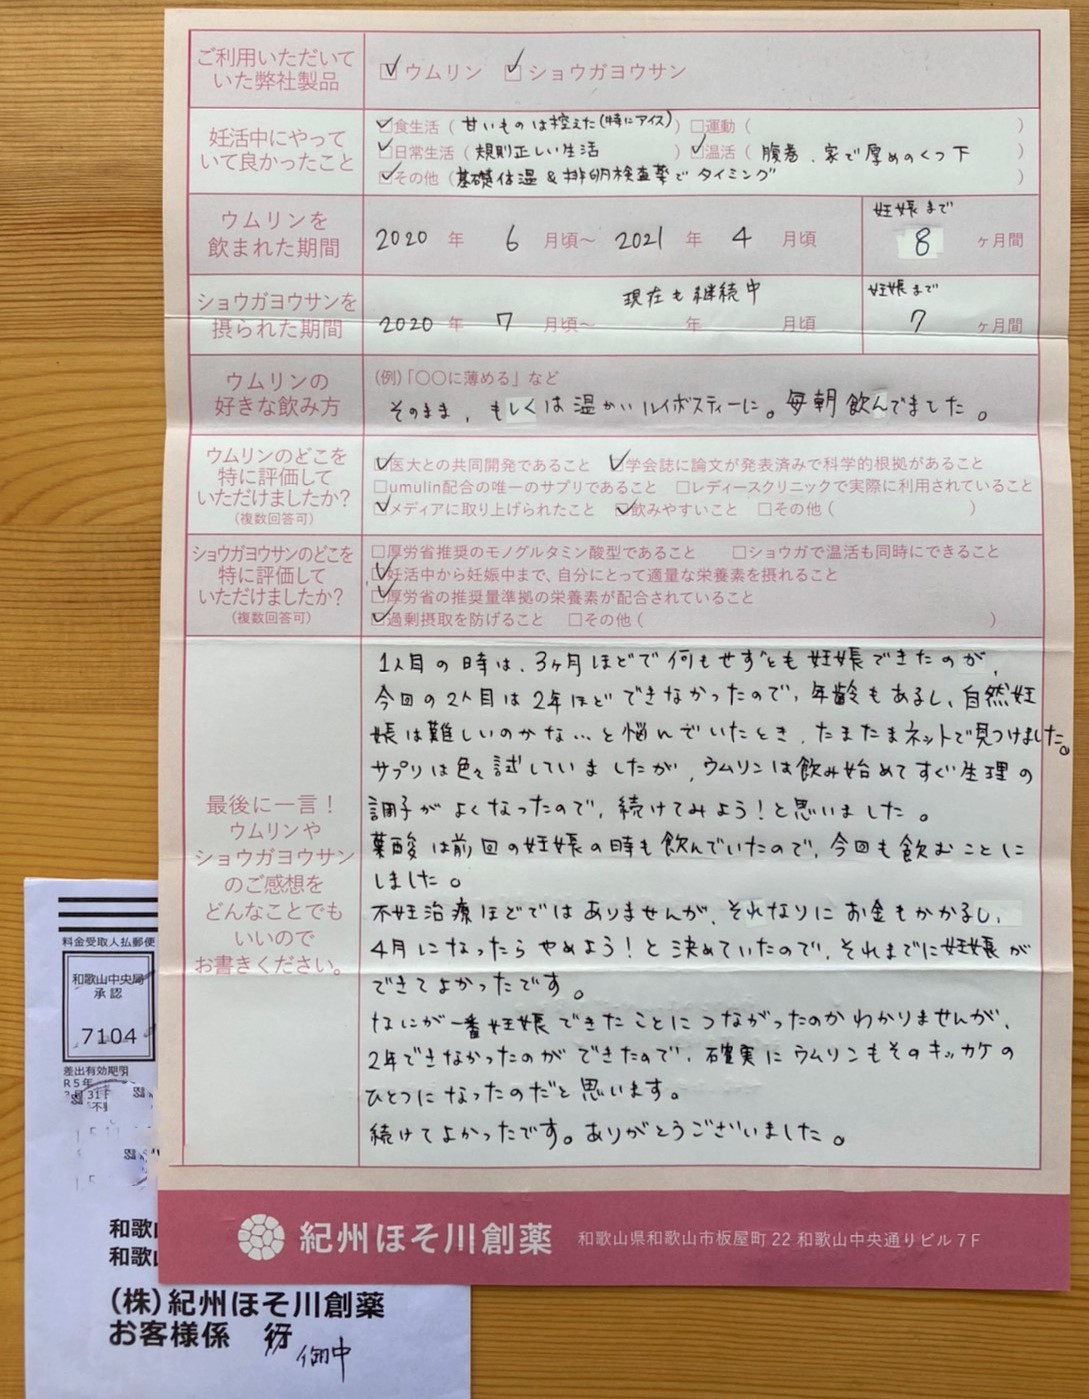 ご利用いただいて
いた弊社製品
☑ウムリン ☑ショウガヨウサン
妊活中にやって
いて良かったこと
☑食生活（甘いものは控えた(特にアイス)）□運動（ ）
☑日常生活（規則正しい生活 ）☑温活（腹巻、家で厚めのくつ下 ）
☑その他（基礎体温＆排卵検査薬でタイミング ）
ウムリンを
飲まれた期間
2020 年 6 月頃〜 2021 年 4 月頃
妊娠まで
8 ヶ月間
ショウガヨウサンを
摂られた期間
現在も継続中
2020 年 7 月頃〜 年 月頃
妊娠まで
7 ヶ月間
ウムリンの
好きな飲み方
(例)「〇〇に薄める」など
そのまま、もしくは温かいルイボスティーに。毎朝飲んでました。
ウムリンのどこを
特に評価して
いただけましたか?
(複数回答可)
☑医大との共同開発であること ☑学会誌に論文が発表済みで科学的根拠があること
□umulin配合の唯一のサプリであること □レディースクリニックで実際に利用されていること
☑メディアに取り上げられたこと ☑飲みやすいこと □その他（ ）
ショウガヨウサンのどこを
特に評価して
いただけましたか?
(複数回答可)
□厚労省推奨のモノグルタミン酸型であること □ショウガで温活も同時にできること
☑妊活中から妊娠中まで、自分にとって適量な栄養素を摂れること
☑厚労省の推奨量準拠の栄養素が配合されていること
☑過剰摂取を防げること □その他（ ）
最後に一言！
ウムリンや
ショウガヨウサン
のご感想を
どんなことでも
いいので
お書きください。
1人目の時は、3ヶ月ほどで何もせずとも妊娠できたのが、
今回の2人目は2年ほどできなかったので、年齢もあるし、自然妊
娠は難しいのかな…と悩んでいたとき、たまたまネットで見つけました。
サプリは色々試していましたが、ウムリンは飲み始めてすぐ生理の
調子がよくなったので、続けてみよう！と思いました。
葉酸は前回の妊娠の時も飲んでいたので、今回も飲むことに
しました。
不妊治療ほどではありませんが、それなりにお金もかかるし、
4月になったらやめよう！と決めていたので、それまでに妊娠が
できてよかったです。
なにが一番妊娠できたことにつながったのかわかりませんが、
2年できなかったのができたので、確実にウムリンもそのキッカケの
ひとつになったのだと思います。
続けてよかったです。ありがとうございました。
紀州ほそ川創薬 和歌山県和歌山市板屋町 22 和歌山中央通りビル 7F
料金受取人払郵便
和歌山中央局
承認
7104
差出有効期間
R5年
31
和歌
和歌
(株)紀州ほそ川創薬
お客様係 行
御中